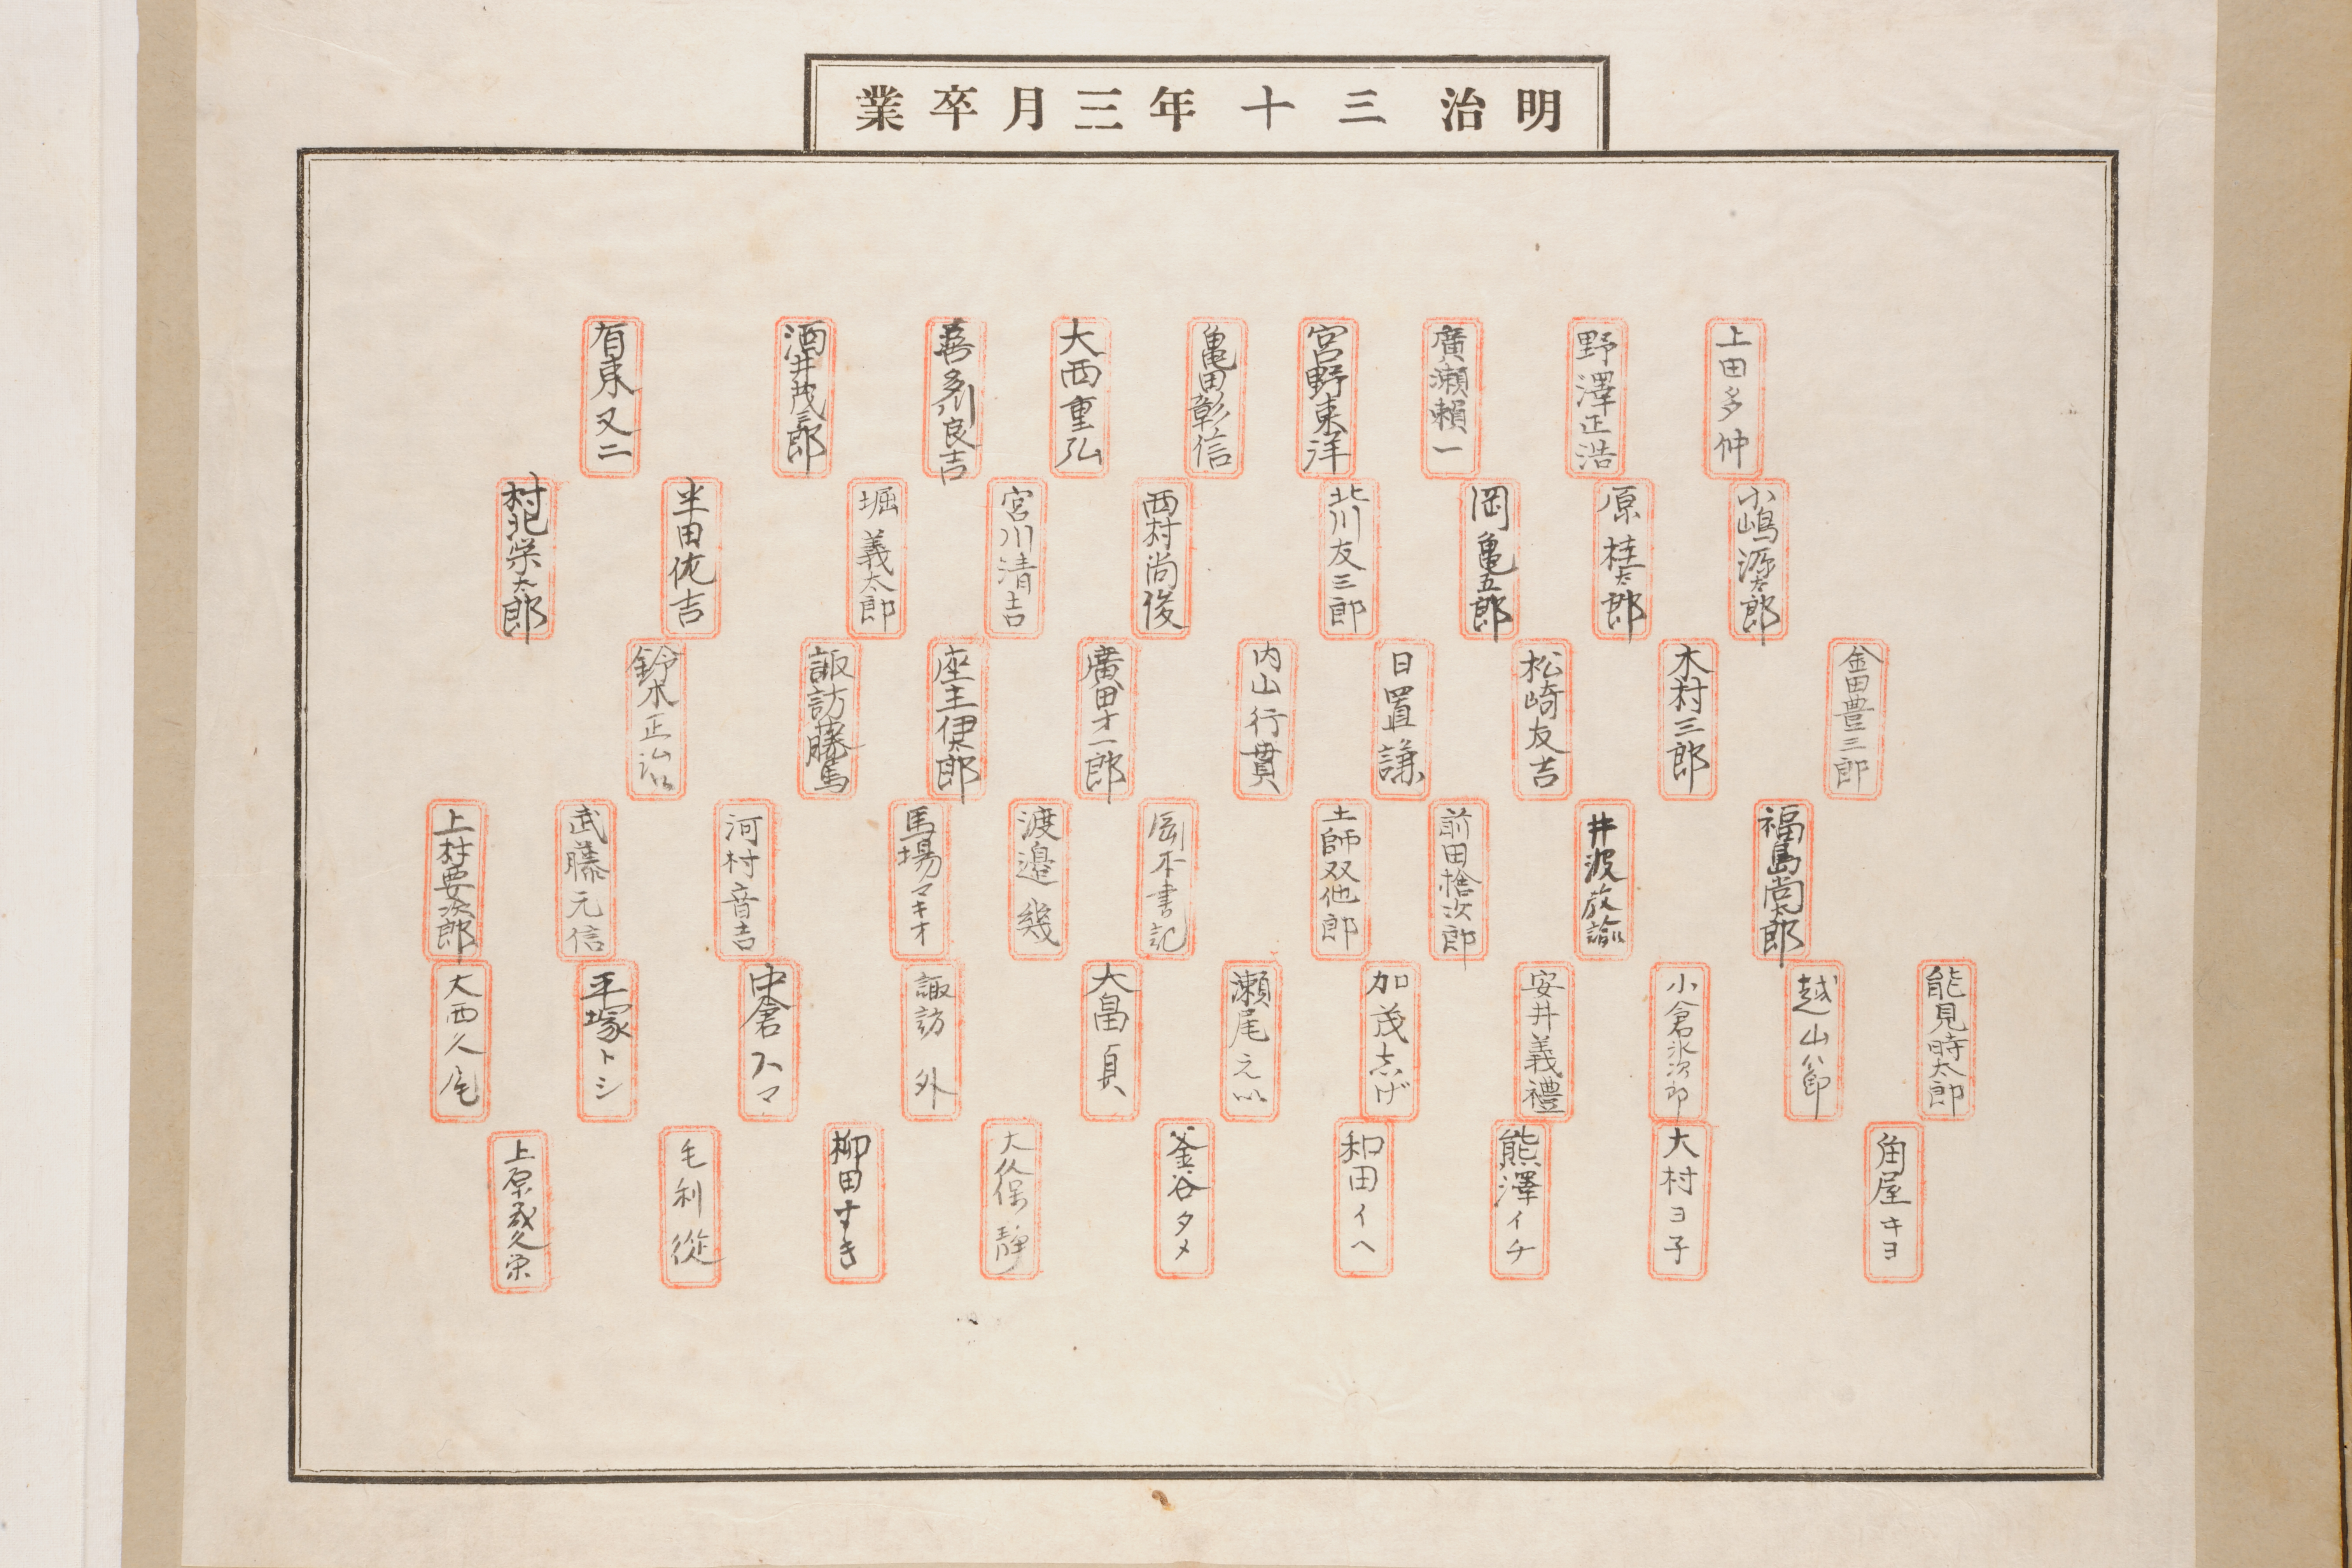 明治三十年三月卒業
上田多仲
野澤正浩
廣瀬頼一
宮野東洋
亀田彰信
大西重弘
喜多川良吉
酒井茂三郎
有東又二
小嶋源太郎
原桂太郎
岡亀五郎
北川友三郎
西村尚俊
宮川清吉
堀義太郎
半田佐吉
村北栄太郎
金田豊三郎
木村三郎
松崎友吉
日置謙
内山行貫
廣田才一郎
座主伊太郎
諏訪藤馬
鈴木正治
福島尚太郎
井波教諭
前田捨次郎
土師双他郎
岡本書記
渡邉幾
馬場マキオ
河村音吉
武藤元信
上村要次郎
能見時太郎
越山八郎
小倉次郎
安井義禮
加茂志げ
瀬尾えい
大畠貞
諏訪外
中倉スマ
平塚トシ
大西久尾
角屋キヨ
大村ヨ子
熊澤イチ
和田イヘ
釜谷タメ
大久保静
柳田すき
毛利從
上原成久栄